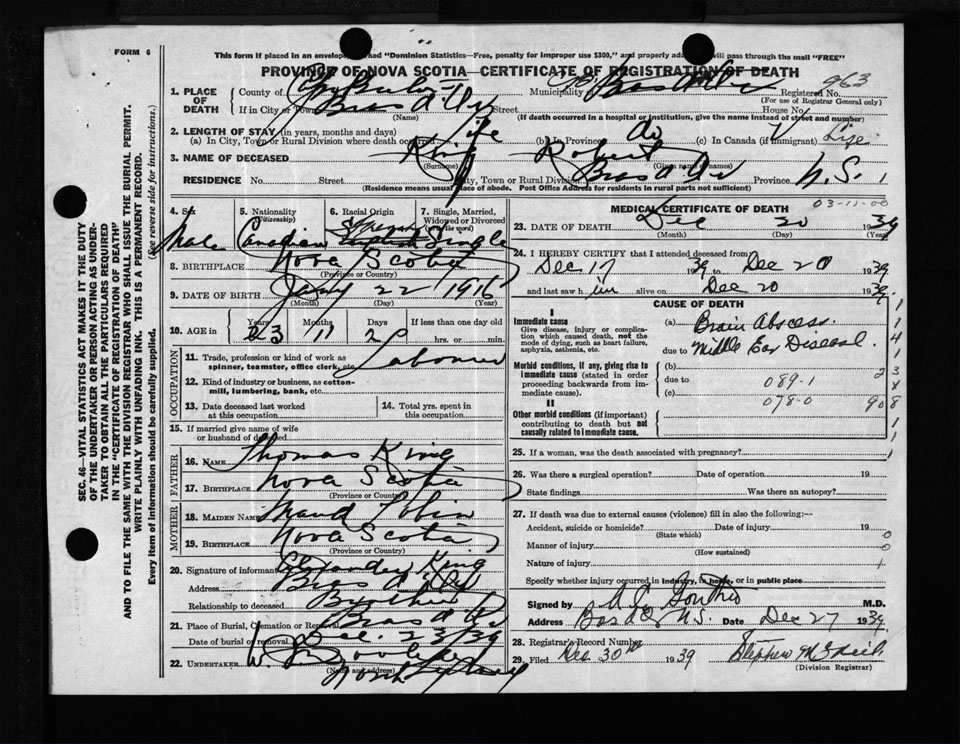 FORM 6
This form if placed in an envelope marked "Dominion Statistics—Free, penalty for improper use $300," and properly addressed will pass through the mail "FREE"
PROVINCE OF NOVA SCOTIA—CERTIFICATE OF REGISTRATION OF DEATH
963
1. PLACE OF DEATH County of Cape Breton Municipality Bras d'Or Registered No.
(For use of Registrar General only)
If in City or Town Bras d'Or Street House No.
(Name) (If death occurred in a hospital or institution, give the name instead of street and number)
2. LENGTH OF STAY (in years, months and days)
(a) In City, Town or Rural Division where death occurred Life (b) In Province do (c) In Canada (if immigrant) Life
3. NAME OF DECEASED King Robert
(Surname) (Given name or names)
RESIDENCE No. Street City, Town or Rural Division Bras d'Or Province N.S.
(Residence means usual place of abode. Post Office Address for residents in rural parts not sufficient)
4. Sex Male
5. Nationality (Citizenship) Canadian
6. Racial Origin
7. Single, Married, Widowed or Divorced (write the word) Single
8. BIRTHPLACE Nova Scotia
(Province or Country)
9. DATE OF BIRTH Jany 22 1916
(Month) (Day) (Year)
10. AGE in Years 23 Months 11 Days If less than one day old
hrs. or min.
OCCUPATION
11. Trade, profession or kind of work as spinner, teamster, office clerk, etc. Labourer
12. Kind of industry or business, as cotton-mill, lumbering, bank, etc.
13. Date deceased last worked at this occupation
14. Total yrs. spent in this occupation
15. If married give name of wife or husband of deceased
FATHER
16. NAME Thomas King
17. BIRTHPLACE Nova Scotia
(Province or Country)
MOTHER
18. MAIDEN NAME Maud
19. BIRTHPLACE Nova Scotia
(Province or Country)
20. Signature of informant Alexander King
Address Bras d'Or
Relationship to deceased Brother
21. Place of Burial, Cremation or Removal Bras d'Or
Date of burial or removal Dec. 23/39
22. UNDERTAKER W.
(Name and address) North Sydney
MEDICAL CERTIFICATE OF DEATH
03-11-00
23. DATE OF DEATH Dec 20 1939
(Month) (Day) (Year)
24. I HEREBY CERTIFY that I attended deceased from
Dec 17 1939 to Dec 20 1939
and last saw him alive on Dec 20 1939
CAUSE OF DEATH
I
Immediate cause
Give disease, injury or complication which caused death, not the mode of dying, such as heart failure, asphyxia, asthenia, etc.
(a) Brain Abscess
due to Middle Ear Disease
Morbid conditions, if any, giving rise to immediate cause (stated in order proceeding backwards from immediate cause).
(b)
due to 089-1
(c) 078-0 908
II
Other morbid conditions (if important) contributing to death but not causally related to immediate cause.
25. If a woman, was the death associated with pregnancy?
26. Was there a surgical operation? Date of operation 19
State findings Was there an autopsy?
27. If death was due to external causes (violence) fill in also the following:—
Accident, suicide or homicide? Date of injury 19
(State which)
Manner of injury
(How sustained)
Nature of injury
Specify whether injury occurred in industry, in home, or in public place
Signed by M.D.
Address Bras d'Or N.S. Date Dec 27 1939
28. Registrar's Record Number
29. Filed Dec 30th 1939 Stephen McNeil
(Division Registrar)
SEC. 46—VITAL STATISTICS ACT MAKES IT THE DUTY
OF THE UNDERTAKER OR PERSON ACTING AS UNDER-
TAKER TO OBTAIN ALL THE PARTICULARS REQUIRED
IN THE "CERTIFICATE OF REGISTRATION OF DEATH"
AND TO FILE THE SAME WITH THE DIVISION REGISTRAR WHO SHALL ISSUE THE BURIAL PERMIT.
WRITE PLAINLY WITH UNFADING INK. THIS IS A PERMANENT RECORD.
Every item of information should be carefully supplied. (See reverse side for instructions.)